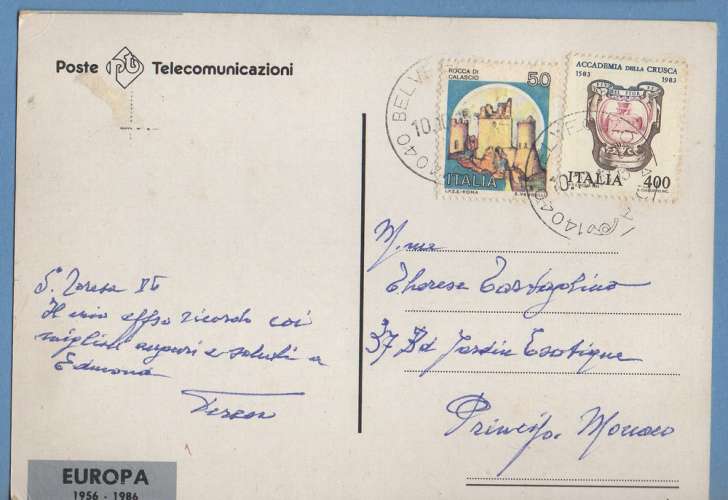 Poste Telecomunicazioni
ROCCA DI
CALASCIO
50
ITALIA
I.P.Z.S.-ROMA
ACCADEMIA DELLA CRUSCA
1583 1983
ITALIA 400
14040 BELV
10
14040
S. Teresa
Il mio ricordo coi
migliori auguri e saluti a
Edmond
Teresa
M.me
Therese Castagolino
37 Bd Jardin Exotique
Princip. Monaco
EUROPA
1956 - 1986